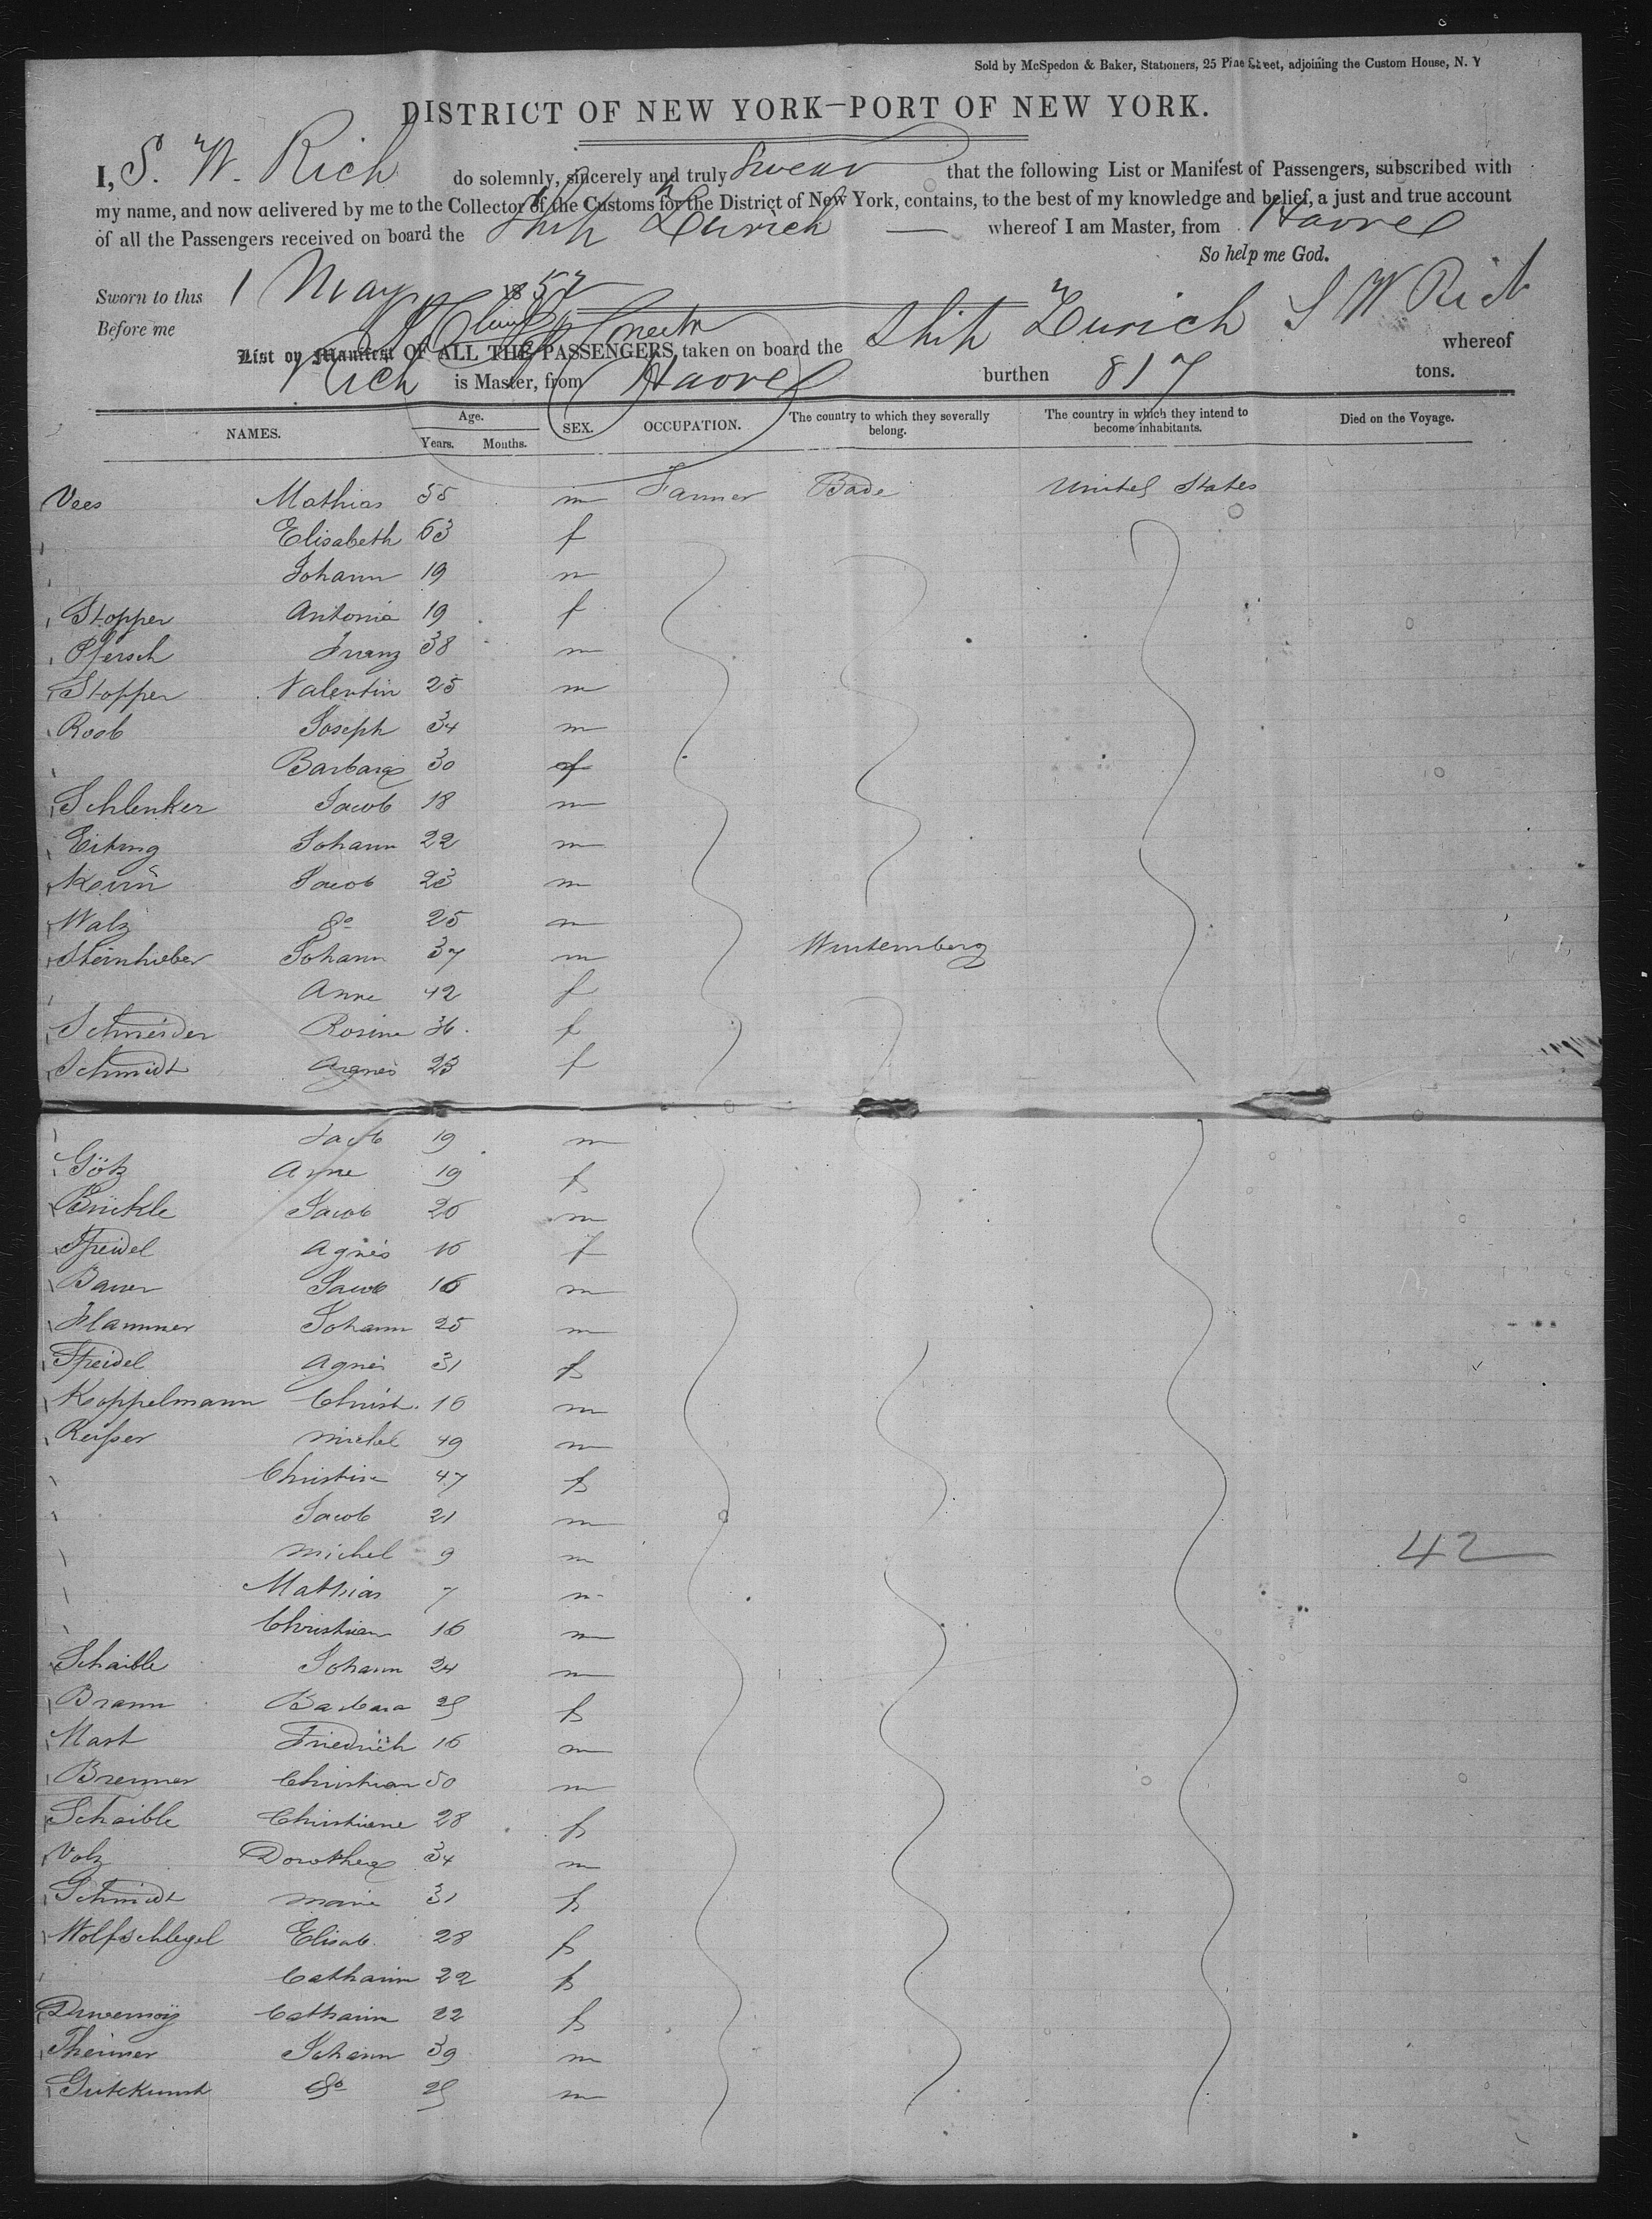 Sold by McSpedon & Baker, Stationers, 25 Pine Street, adjoining the Custom House, N. Y
DISTRICT OF NEW YORK—PORT OF NEW YORK.
I, S. W. Rich do solemnly, sincerely and truly Swear that the following List or Manifest of Passengers, subscribed with
my name, and now delivered by me to the Collector of the Customs for the District of New York, contains, to the best of my knowledge and belief, a just and true account
of all the Passengers received on board the Ship Zurich — whereof I am Master, from Havre
So help me God.
Sworn to this 1 May 1857
Before me
S W Rich
List or Manifest OF ALL THE PASSENGERS taken on board the Ship Zurich whereof
Rich is Master, from Havre burthen 817 tons.
NAMES. Age. Years. Months. SEX. OCCUPATION. The country to which they severally belong. The country in which they intend to become inhabitants. Died on the Voyage.
Vees Mathias 55 m Farmer Bade United States
Elisabeth 63 f
Johann 19 m
Stopper Antonia 19 f
Pfersch Franz 38 m
Stopper Valentin 25 m
Roob Joseph 34 m
Barbara 30 f
Schlenker Jacob 18 m
Johann 22 m
Jacob 23 m
Walz do 25 m
Steinhieber Johann 37 m Wurtemberg
Anne 42 f
Schneider Rosine 36 f
Schmidt Agnes 23 f
Jacob 19 m
Götz Anne 19 f
Jacob 26 m
Speidel Agnes 16 f
Bauer Jacob 16 m
Flammer Johann 25 m
Speidel Agnes 31 f
Koppelmann Christ. 16 m
Keißer Michel 49 m
Christine 47 f
Jacob 21 m
Michel 9 m
42
Mathias 7 m
Christian 16 m
Schaible Johann 24 m
Braun Barbara 25 f
Mast Friedrich 16 m
Brenner Christian 50 m
Schaible Christiane 28 f
Volz Dorothea 34 m
Schmidt Marie 31 f
Wolfschlegel Elisab. 28 f
Catharine 22 f
Duvernoÿ Catharine 22 f
Theurer Johann 39 m
Gutekunst do 25 m